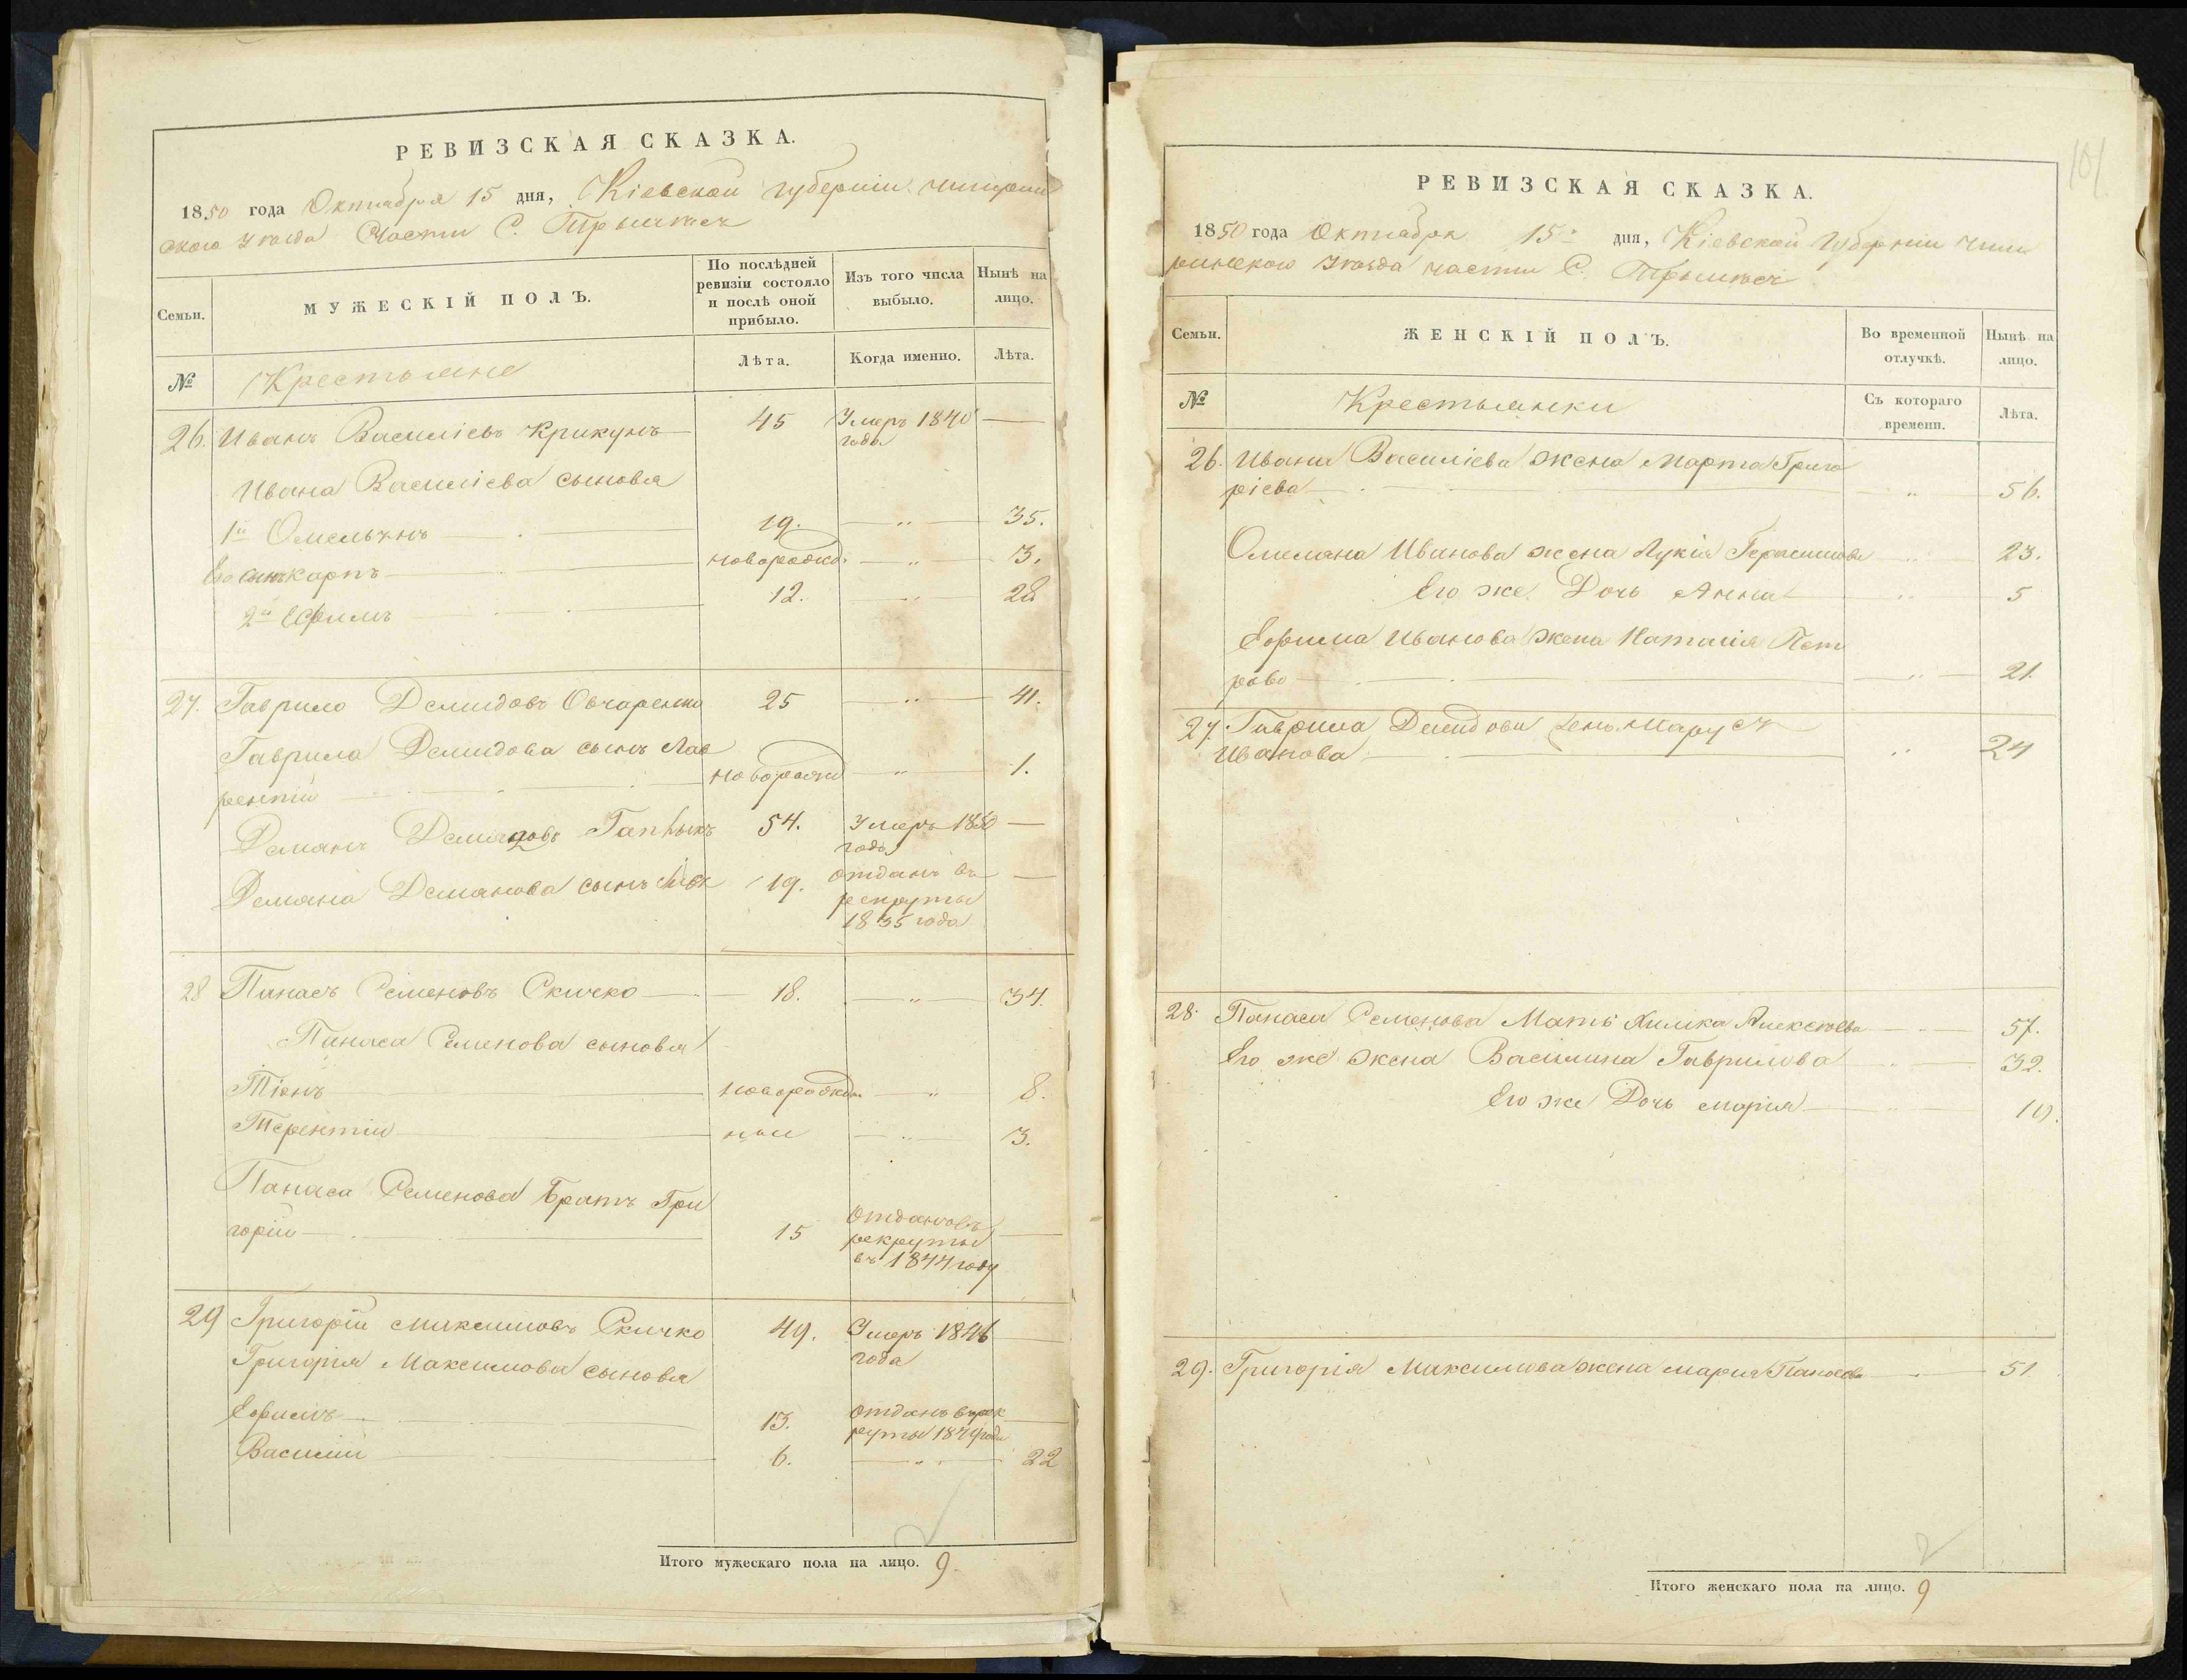 РЕВИЗСКАЯ СКАЗКА.
1850 года Октября 15 дня, Кіевской губерніи чигирин
скаго уезда Части С.
Семьи.
МУЖЕСКІЙ ПОЛЪ.
По послѣдней ревизіи состояло и послѣ оной прибыло.
Изъ того числа выбыло.
Нынѣ на лицо.
№
Крестьяне
Лѣта.
Когда именно.
Лѣта.
26. Иванъ Василіевъ Крикунъ 45 Умеръ 1840 года —
Ивана Василіева сыновя
1й Омельянъ 19. — " — 35.
Его сынъ карпъ новорожд. — " — 3.
2й Ефимъ 12. — " — 28
27. Гаврило Демидовъ Овчаренко 25 — " — 41.
Гаврила Демидова сынъ Лав
рентій новорожд — " — 1.
Демянъ Демидовъ 54. Умеръ 1850 года —
Демяна Демянова сынъ 19. отданъ въ рекруты 1835 года —
28 Панасъ Семеновъ Скичко 18. — " — 34.
Панаса Семенова сыновя
Тіонъ новорожден — " — 8.
Терентій — " — 3.
Панаса Семенова Братъ Гри
горій 15 Отданъ въ рекруты въ 1844 году —
29 Григорій Максимовъ Скичко 49. Умеръ 1846 года —
Григорія Максимова сыновя
Ефимъ 13. отданъ в рек руты года —
Василій 6. — " — 22
Итого мужескаго пола на лицо. 9.
101
РЕВИЗСКАЯ СКАЗКА.
1850 года Октября 15 дня, Кіевской Губерніи чиги
ринскаго уезда части С.
Семьи.
ЖЕНСКІЙ ПОЛЪ.
Во временной отлучкѣ.
Нынѣ на лицо.
№
Крестьянки
Съ котораго времени.
Лѣта.
26. Ивана Василіева жена Марта Григо
ріева — " — 56.
Омеляна Иванова жена Лукія Герасимова 23.
Его же Дочь Анна 5
Ефима Иванова жена Наталія Пет
рова — " — 21.
27. Гаврила Демидова жена
Иванова " 24
28. Панаса Семенова Мать Химка Алексеева 57.
Его же жена Василина Гаврилова 32.
Его же Дочь Марія 10.
29. Григорія Максимова жена Марія Панасова 51.
Итого женскаго пола на лицо. 9